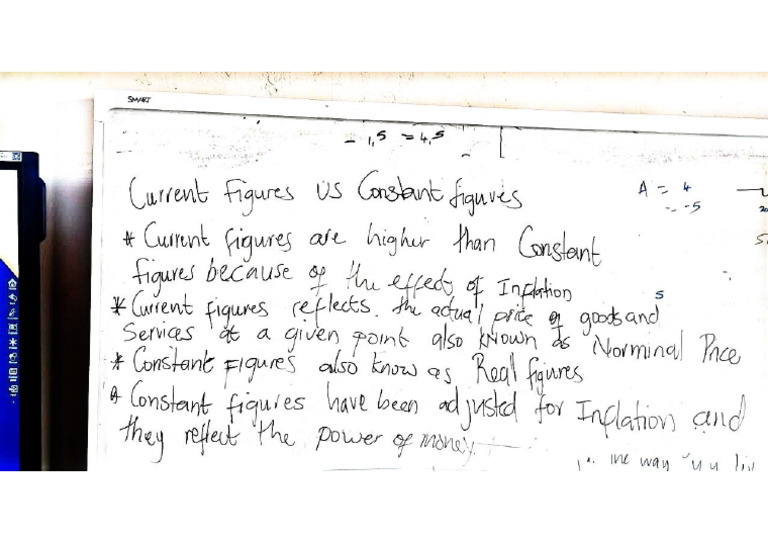 SMART
- 1,5 = 4,5
Current figures VS Constant figures
A = 4
= -5
* Current figures are higher than Constant
figures because of the effects of Inflation
* Current figures reflects the actual price of goods and
Services at a given point also known as Norminal Price
* Constant figures also know as Real figures
* Constant figures have been adjusted for Inflation and
they reflect the power of money.
the way